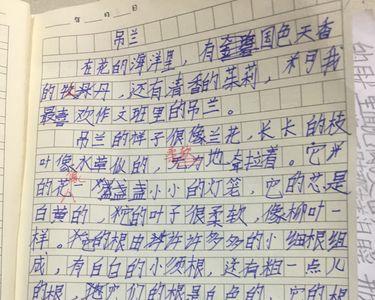 年 月 日
吊兰
在花的海洋里，有国色天香
的牡丹，还有清香的茉莉，不过我
最喜欢作文班里的吊兰。
吊兰的样子很像兰花，长长的枝
叶像水草似的，无力地牵拉着。它
的花一盏盏小小的灯笼，它的芯是
白黄的，它的叶子很柔软，像柳叶一
样。它的根由许许多多的小细根组
成，有白白的小须根，还有粗一点儿
的根，它们的根是白色的，它的根